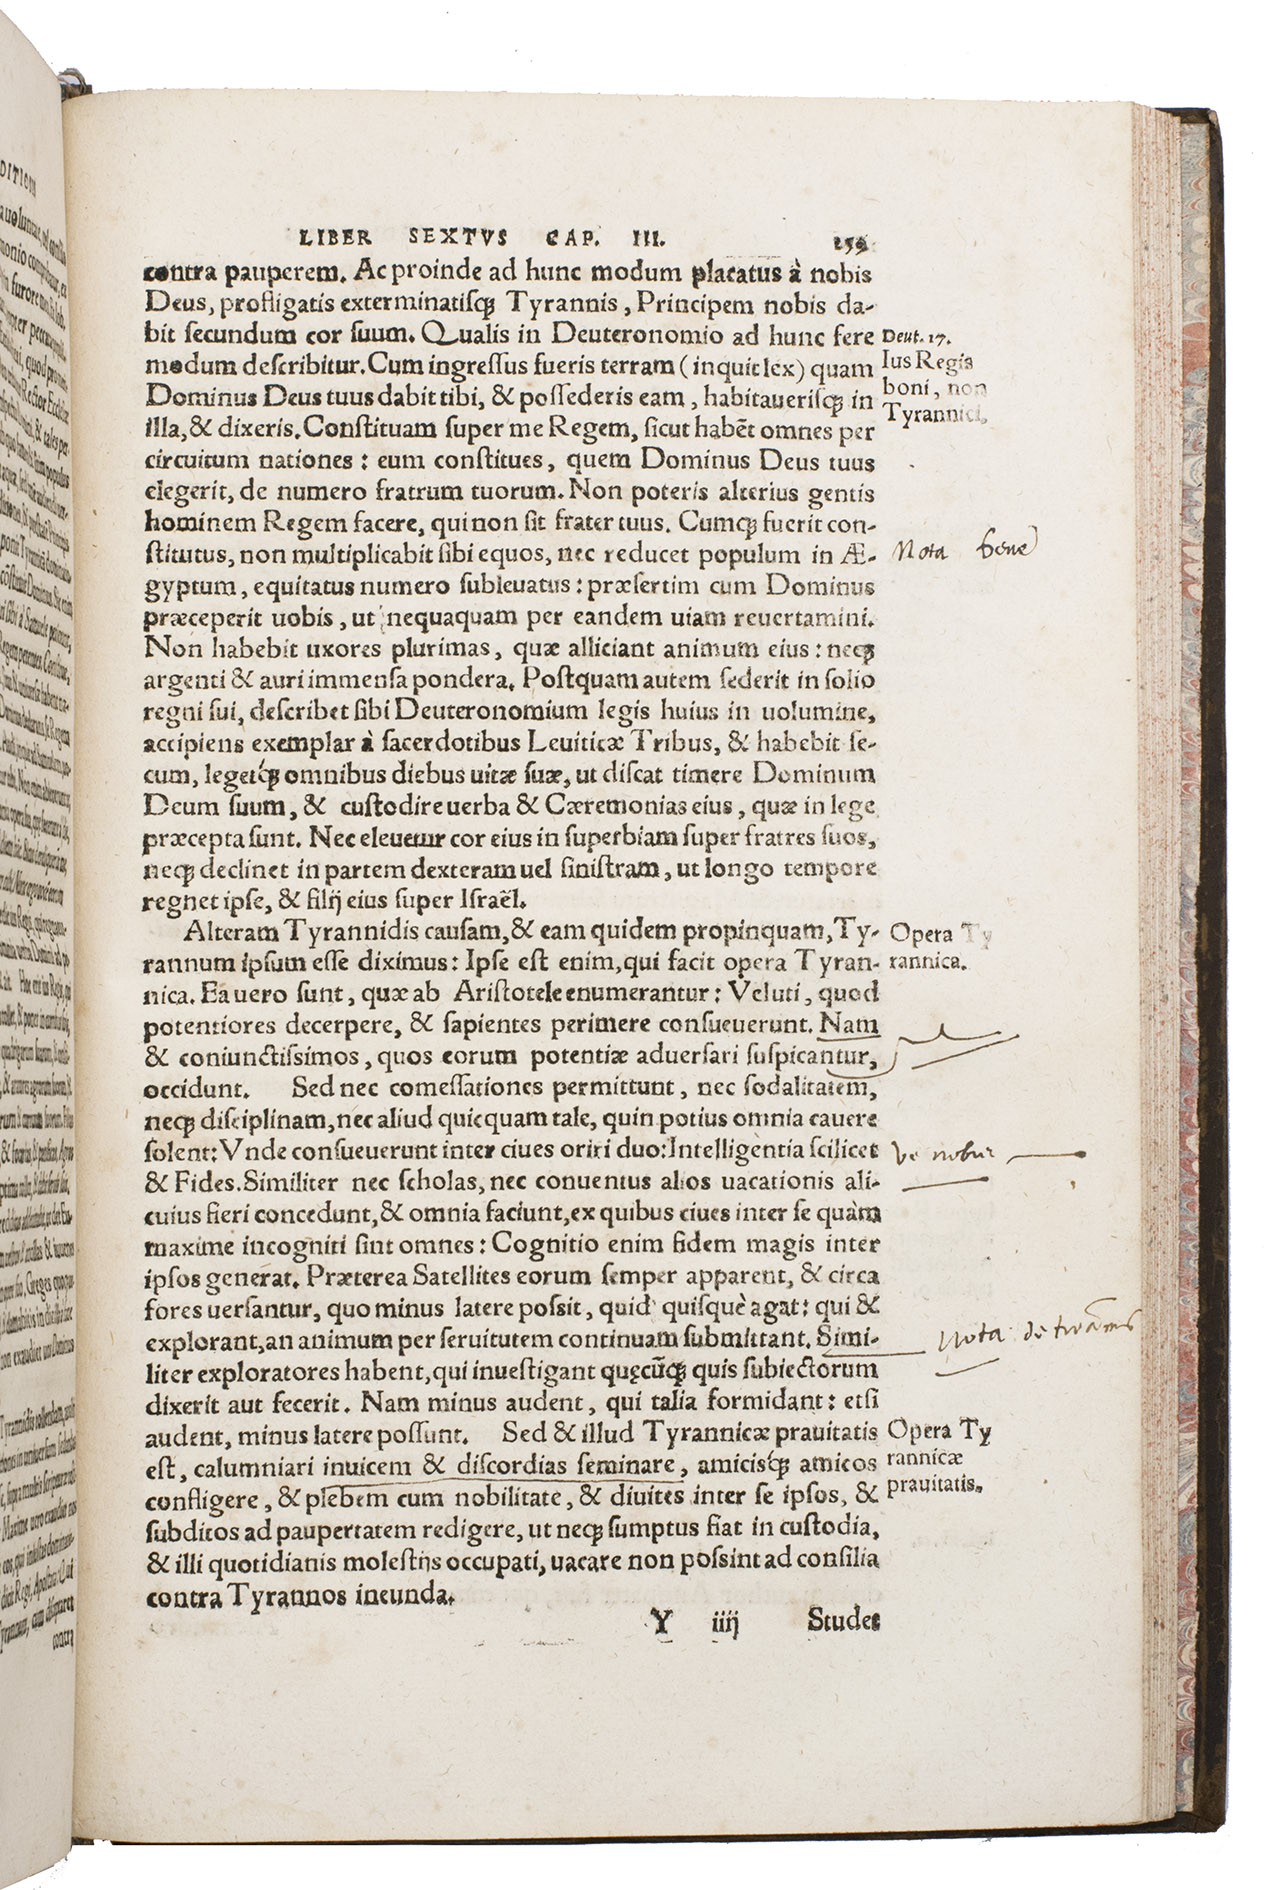 LIBER SEXTVS CAP. III. 259
contra pauperem. Ac proinde ad hunc modum placatus à nobis
Deus, profligatis exterminatisq́ꝫ Tyrannis, Principem nobis da-
bit secundum cor suum. Qualis in Deuteronomio ad hunc fere
modum describitur. Cum ingressus fueris terram (inquit lex) quam
Dominus Deus tuus dabit tibi, & possederis eam, habitauerisq́ꝫ in
illa, & dixeris. Constituam super me Regem, sicut habẽt omnes per
circuitum nationes: eum constitues, quem Dominus Deus tuus
elegerit, de numero fratrum tuorum. Non poteris alterius gentis
hominem Regem facere, qui non sit frater tuus. Cumq́ꝫ fuerit con-
stitutus, non multiplicabit sibi equos, nec reducet populum in Æ-
gyptum, equitatus numero subleuatus: præsertim cum Dominus
præceperit uobis, ut nequaquam per eandem uiam reuertamini.
Non habebit uxores plurimas, quæ alliciant animum eius: neqꝫ
argenti & auri immensa pondera. Postquam autem sederit in solio
regni sui, describet sibi Deuteronomium legis huius in uolumine,
accipiens exemplar à sacerdotibus Leuiticæ Tribus, & habebit se-
cum, legetq́ꝫ omnibus diebus uitæ suæ, ut discat timere Dominum
Deum suum, & custodire uerba & Cæremonias eius, quæ in lege
præcepta sunt. Nec eleuetur cor eius in superbiam super fratres suos,
neqꝫ declinet in partem dexteram uel sinistram, ut longo tempore
regnet ipse, & filij eius super Israẽl.
Alteram Tyrannidis causam, & eam quidem propinquam, Ty-
rannum ipsum esse diximus: Ipse est enim, qui facit opera Tyran-
nica. Ea uero sunt, quæ ab Aristotele enumerantur: Veluti, quod
potentiores decerpere, & sapientes perimere consueuerunt. Nam
& coniunctissimos, quos eorum potentiæ aduersari suspicantur,
occidunt. Sed nec comessationes permittunt, nec sodalitatem,
neqꝫ disciplinam, nec aliud quicquam tale, quin potius omnia cauere
solent: Vnde consueuerunt inter ciues oriri duo: Intelligentia scilicet
& Fides. Similiter nec scholas, nec conuentus alios uacationis ali-
cuius fieri concedunt, & omnia faciunt, ex quibus ciues inter se quàm
maxime incogniti sint omnes: Cognitio enim fidem magis inter
ipsos generat. Præterea Satellites eorum semper apparent, & circa
fores uersantur, quo minus latere possit, quid quisquè agat: qui &
explorant, an animum per seruitutem continuam submittant. Simi-
liter exploratores habent, qui inuestigant quęcũqꝫ quis subiectorum
dixerit aut fecerit. Nam minus audent, qui talia formidant: etsi
audent, minus latere possunt. Sed & illud Tyrannicæ prauitatis
est, calumniari inuicem & discordias seminare, amicisq́ꝫ amicos
confligere, & plebem cum nobilitate, & diuites inter se ipsos, &
subditos ad paupertatem redigere, ut neqꝫ sumptus fiat in custodia,
& illi quotidianis molestijs occupati, uacare non possint ad consilia
contra Tyrannos ineunda.
Y iiij Studet
Deut. 17.
Ius Regis
boni, non
Tyrannici.
Nota bene
Opera Ty
rannica.
Nota de tirannis
Opera Ty
rannicæ
prauitatis.